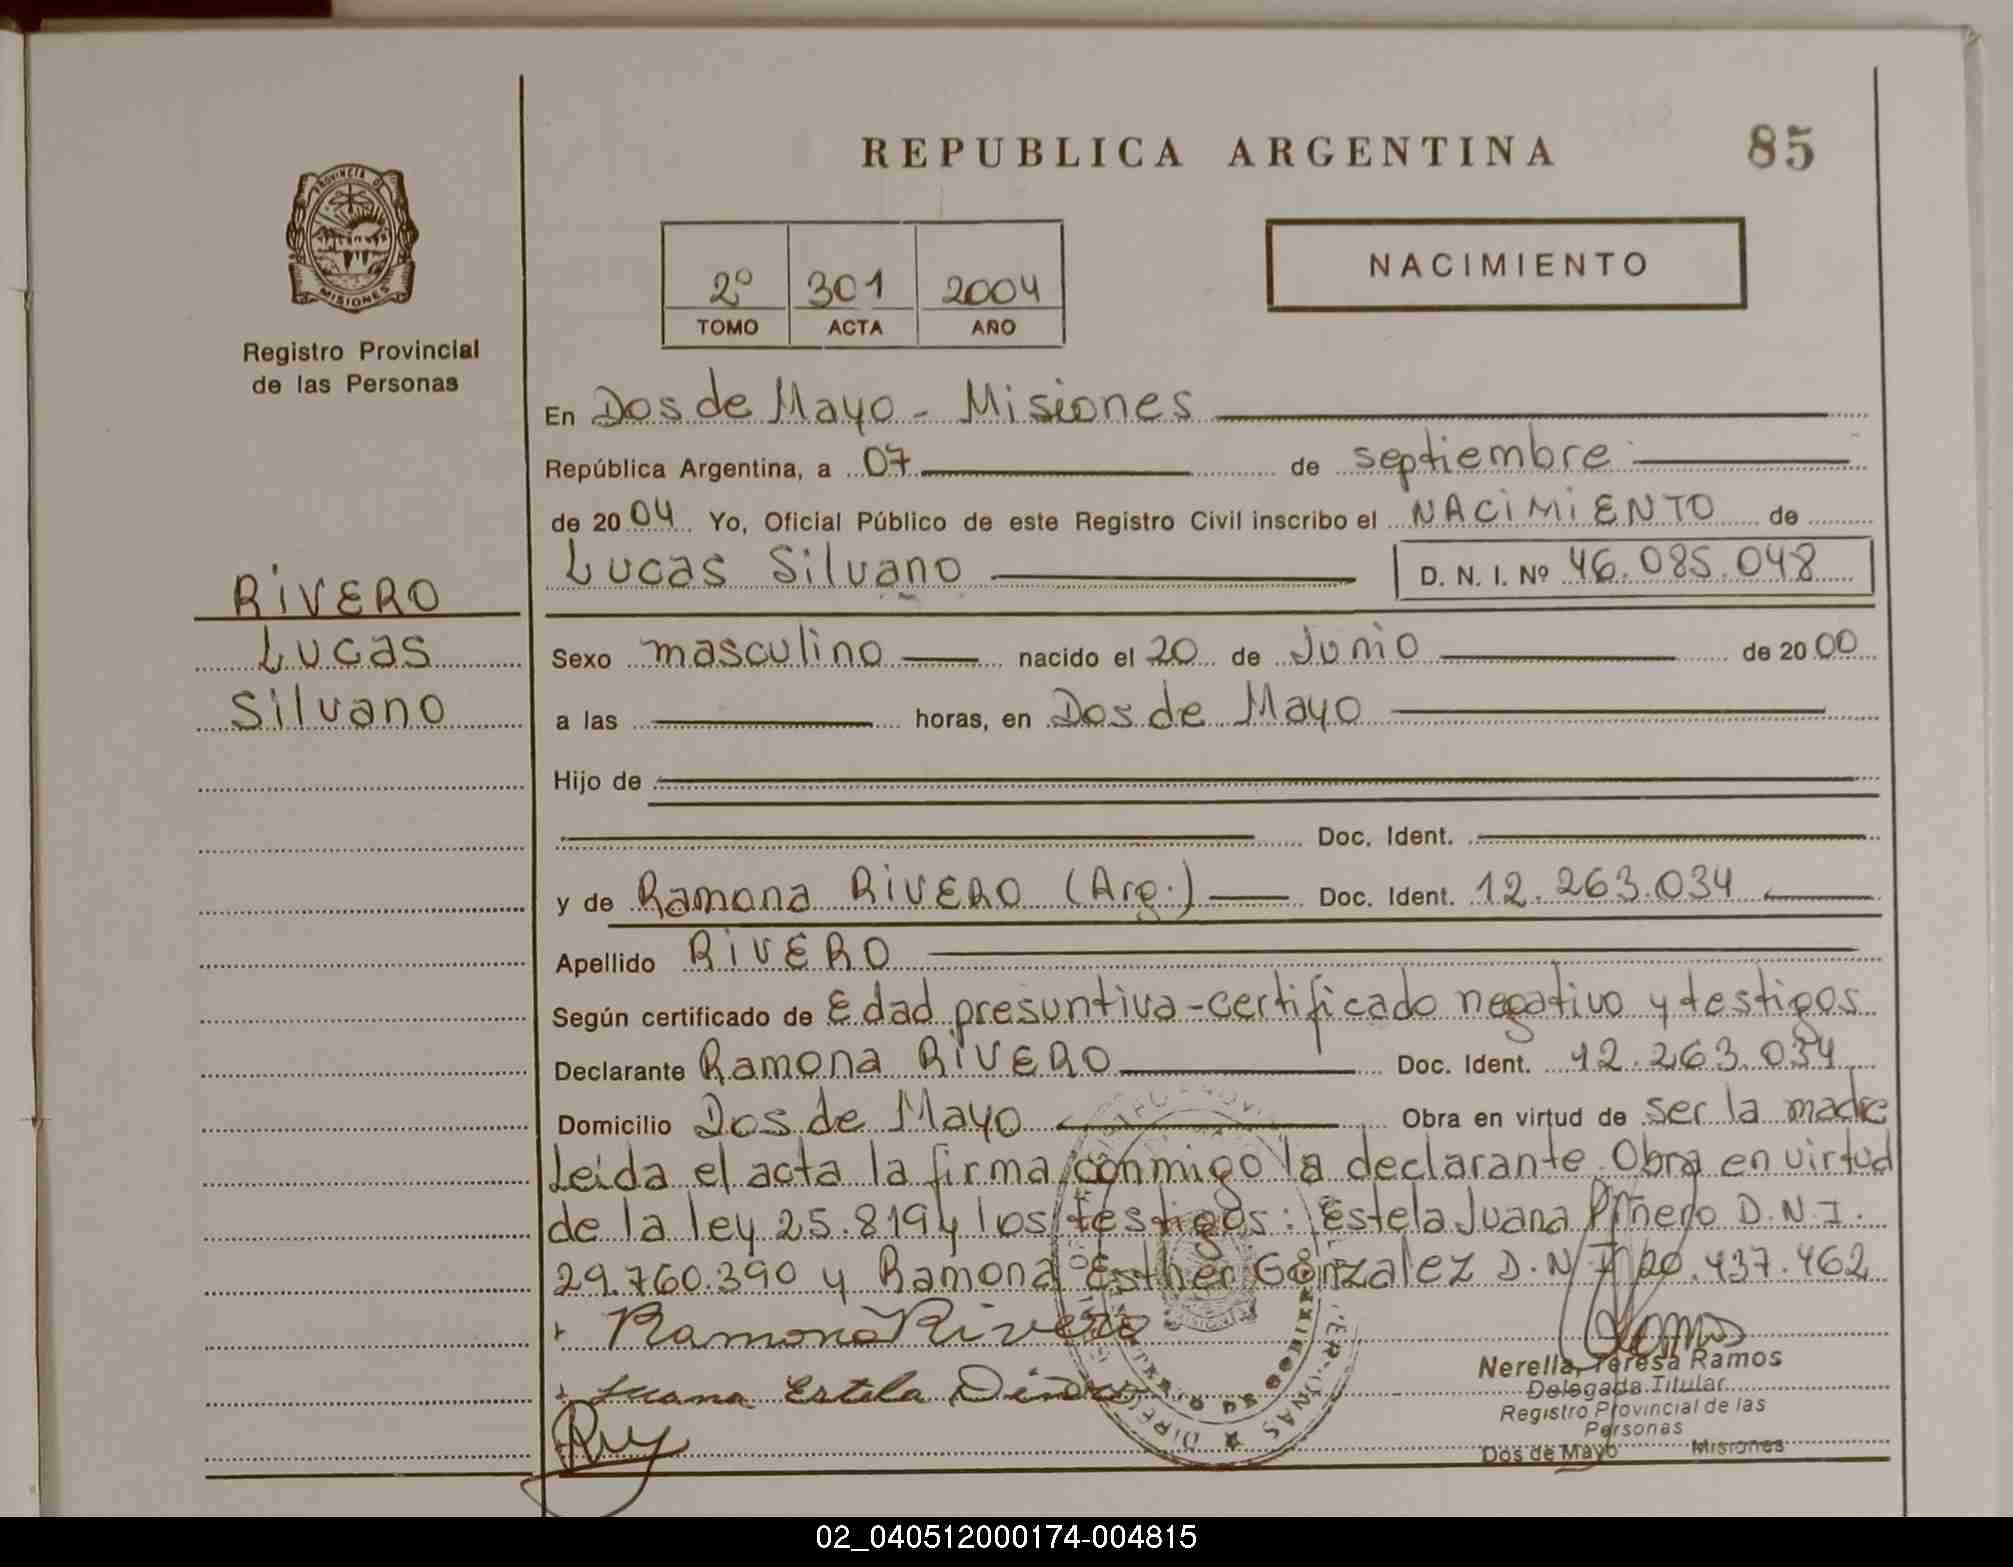 REPUBLICA ARGENTINA
85
PROVINCIA DE
MISIONES
Registro Provincial
de las Personas
2º 301 2004
TOMO ACTA AÑO
NACIMIENTO
RIVERO
Lucas
Silvano
En Dos de Mayo - Misiones
República Argentina, a 07 de septiembre
de 2004 Yo, Oficial Público de este Registro Civil inscribo el NACIMIENTO de
Lucas Silvano D. N. I. Nº 46.085.048
Sexo masculino nacido el 20 de Junio de 2000
a las horas, en Dos de Mayo
Hijo de
Doc. Ident.
y de Ramona RIVERO (Arg.) Doc. Ident. 12.263.034
Apellido RIVERO
Según certificado de Edad presuntiva-certificado negativo y testigos
Declarante Ramona RIVERO Doc. Ident. 12.263.034
Domicilio Dos de Mayo Obra en virtud de ser la madre
Leída el acta la firma conmigo la declarante. Obra en virtud
de la ley 25.819 y los testigos: Estela Juana Piñero D.N.I.
29.760.390 y Ramona Esther Gonzalez D.N.I. 20.437.462
Ramona Rivero
Juana Estela
Nerella Teresa Ramos
Delegada Titular
Registro Provincial de las
Personas
Dos de Mayo Misiones
02_040512000174-004815